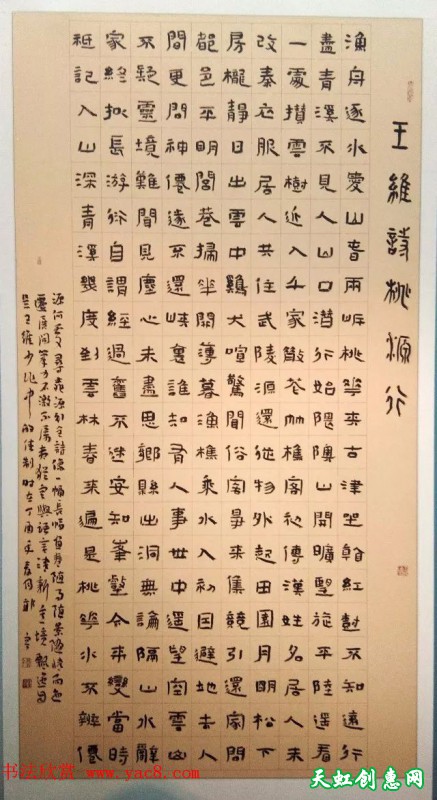 王維詩桃源行
漁舟逐水愛山春兩岸桃華夾古津坐看紅樹不知遠行
盡青溪不見人山口潛行始隈隩山開曠望旋平陸遥看
一處攢雲樹近入千家散花竹樵客初傳漢姓名居人未
改秦衣服居人共住武陵源還從物外起田園月明松下
房櫳靜日出雲中鷄犬喧驚聞俗客爭來集競引還家問
都邑平明閭巷掃華開薄暮漁樵乘水入初因避地去人
間更問神僊遂不還峽裏誰知有人事世中遥望空雲山
不疑靈境難聞見塵心未盡思鄉縣出洞無論隔山水辭
家終擬長游衍自謂經過舊不迷安知峯壑今來變當時
祗記入山深青溪幾度到雲林春來遍是桃華水不辨僊
源何處尋
书法欣赏 www.yac8.com
天虹创惠网